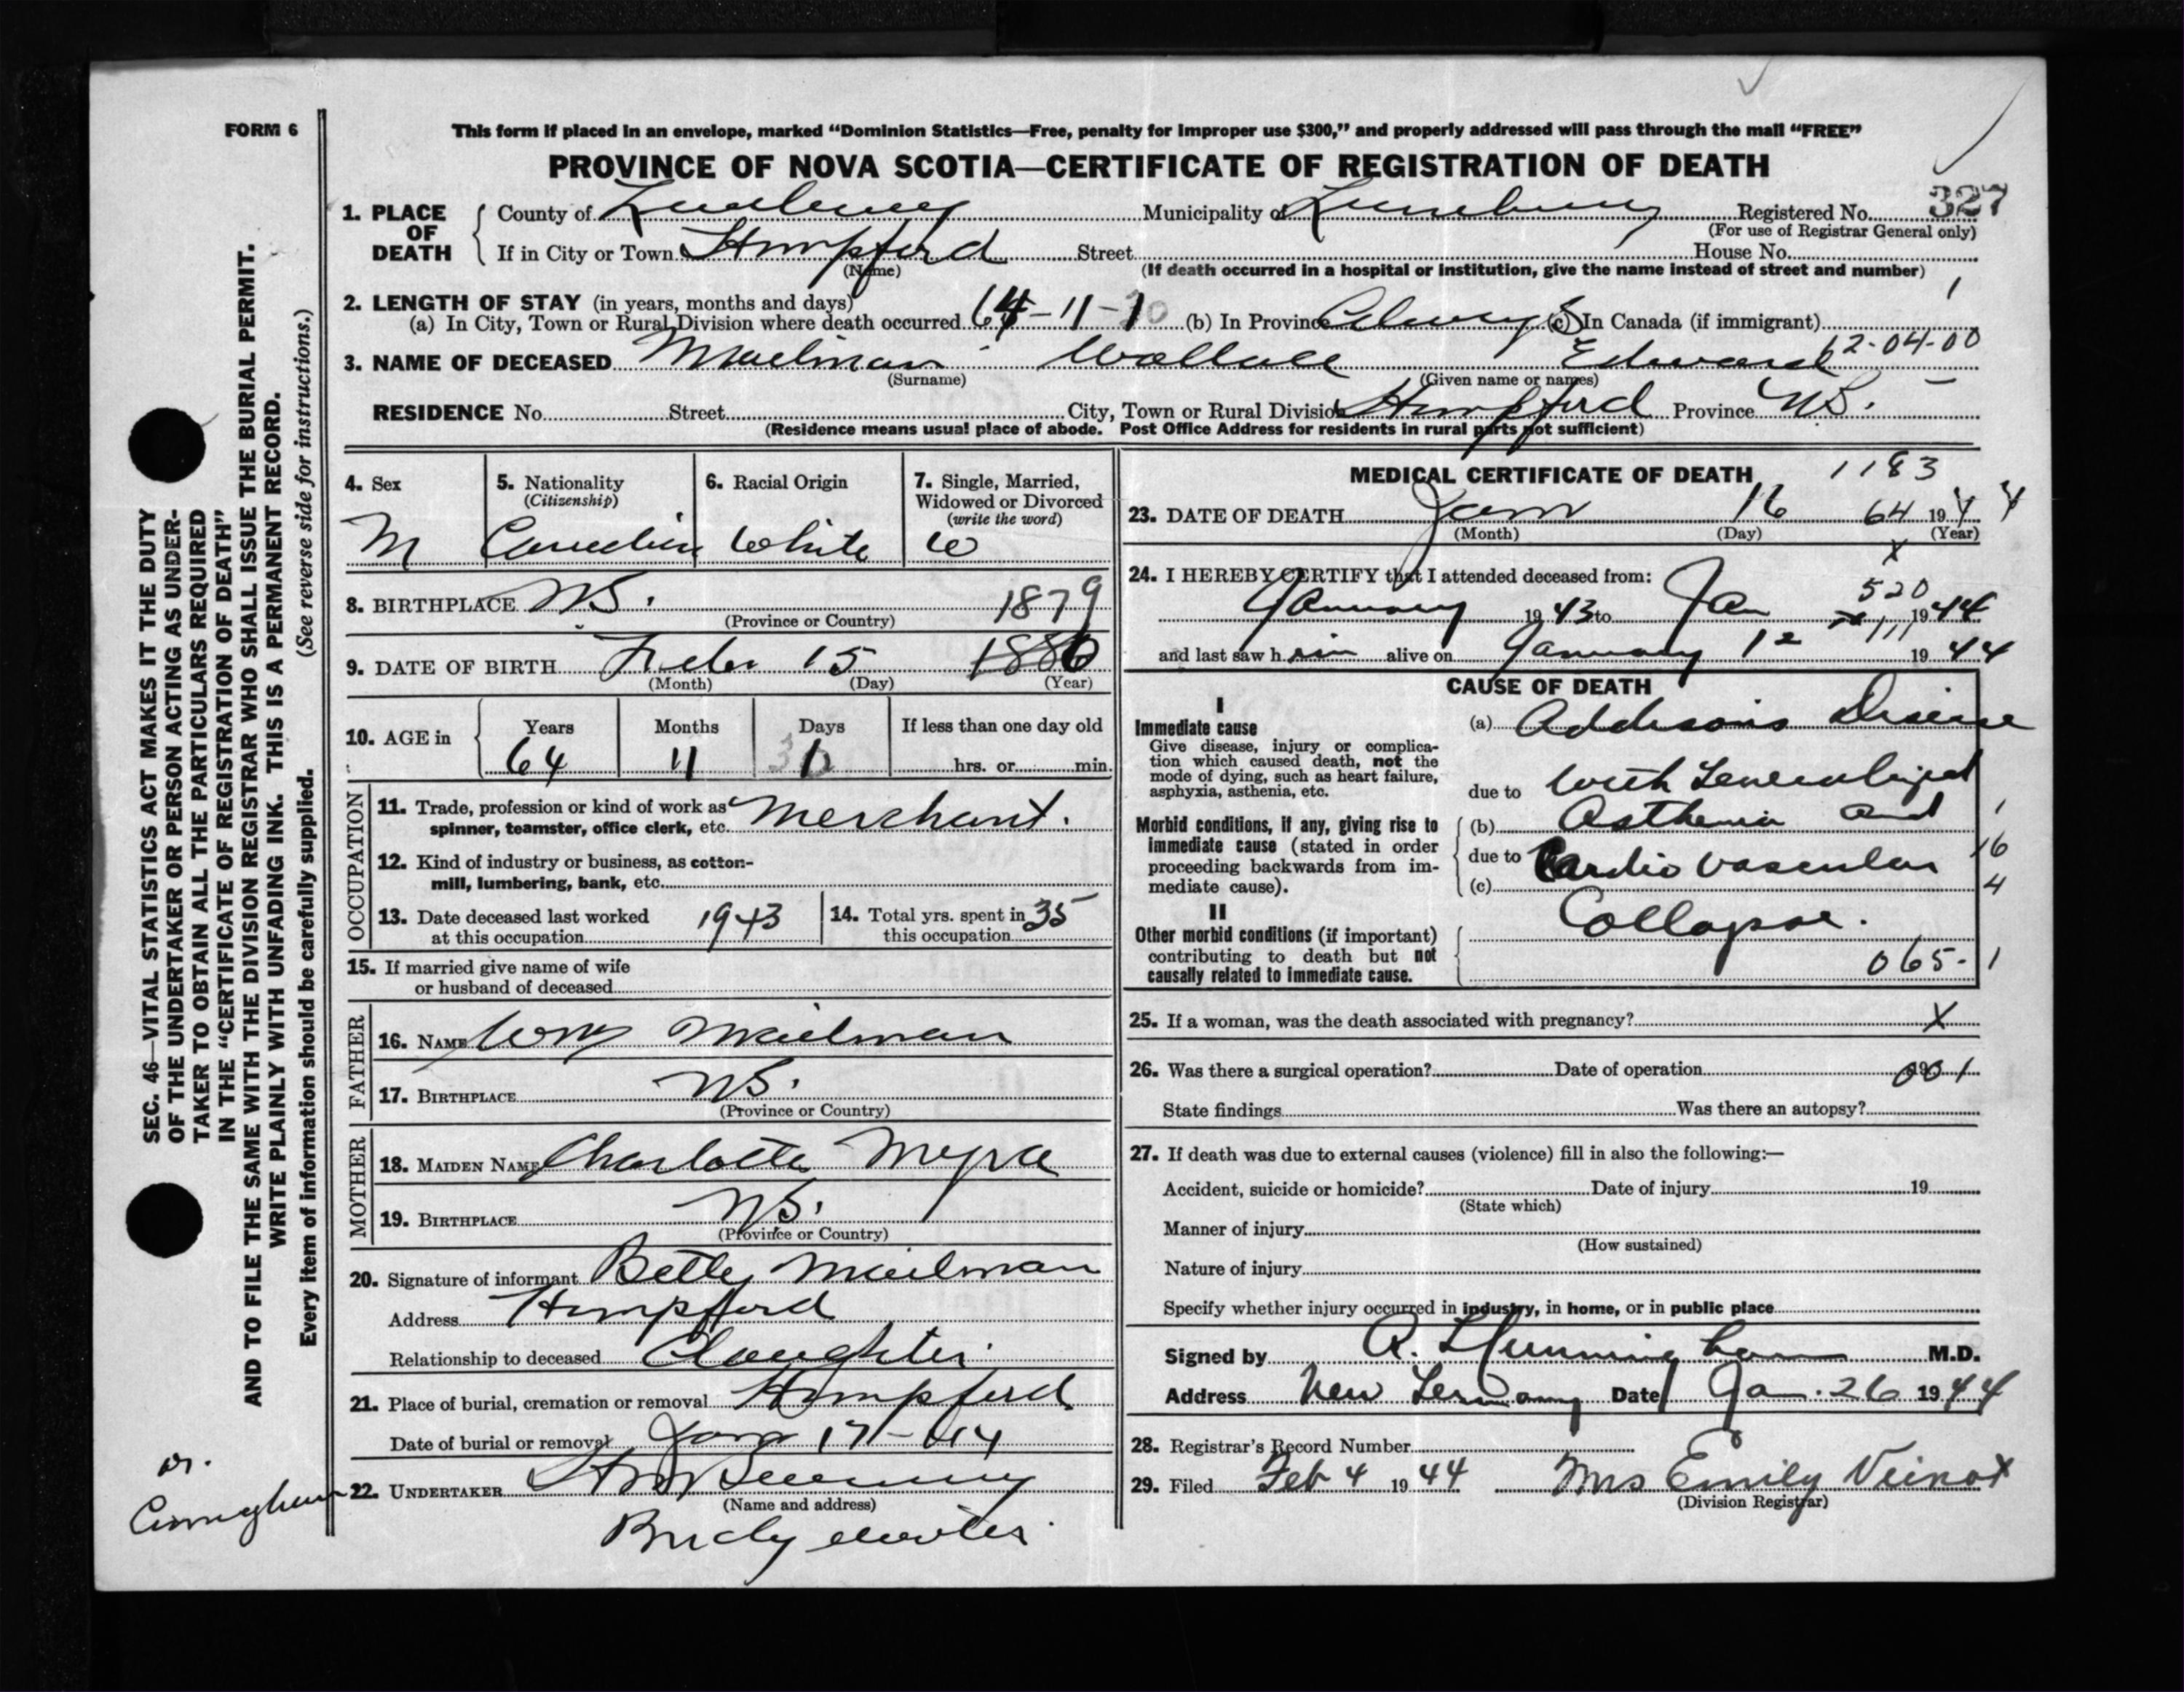 FORM 6
This form if placed in an envelope, marked “Dominion Statistics—Free, penalty for improper use $300,” and properly addressed will pass through the mail “FREE”
PROVINCE OF NOVA SCOTIA—CERTIFICATE OF REGISTRATION OF DEATH
1. PLACE OF DEATH
County of Lunenburg Municipality of Lunenburg Registered No. 327
(For use of Registrar General only)
If in City or Town Hempford Street House No.
(Name) (If death occurred in a hospital or institution, give the name instead of street and number)
2. LENGTH OF STAY (in years, months and days) 1
(a) In City, Town or Rural Division where death occurred 64-11-1 (b) In Province Always (c) In Canada (if immigrant)
3. NAME OF DECEASED Mailman Wallace Edward 62-04-00
(Surname) (Given name or names)
RESIDENCE No. Street City, Town or Rural Division Hempford Province N.S.
(Residence means usual place of abode. Post Office Address for residents in rural parts not sufficient)
4. Sex M
5. Nationality (Citizenship) Canadian
6. Racial Origin White
7. Single, Married, Widowed or Divorced (write the word) W
8. BIRTHPLACE N.S. 1879
(Province or Country)
9. DATE OF BIRTH Feb 15 1880
(Month) (Day) (Year)
10. AGE in Years Months Days If less than one day old
64 11 1 hrs. or min.
OCCUPATION
11. Trade, profession or kind of work as spinner, teamster, office clerk, etc. Merchant.
12. Kind of industry or business, as cotton-mill, lumbering, bank, etc.
13. Date deceased last worked at this occupation 1943
14. Total yrs. spent in this occupation 35
15. If married give name of wife or husband of deceased
FATHER
16. NAME Wm Mailman
17. BIRTHPLACE N.S.
(Province or Country)
MOTHER
18. MAIDEN NAME Charlotte Myra
19. BIRTHPLACE N.S.
(Province or Country)
20. Signature of informant Betty Mailman
Address Hempford
Relationship to deceased Daughter
21. Place of burial, cremation or removal Hempford
Date of burial or removal Jan 17-44
22. UNDERTAKER
(Name and address)
Bridgewater
MEDICAL CERTIFICATE OF DEATH 1183
23. DATE OF DEATH Jan 16 64 1944
(Month) (Day) (Year)
x
24. I HEREBY CERTIFY that I attended deceased from:
520
January 1943 to Jan 1944
111
and last saw him alive on January 12 1944
CAUSE OF DEATH
I
Immediate cause
Give disease, injury or complication which caused death, not the mode of dying, such as heart failure, asphyxia, asthenia, etc.
(a) Addisons Disease
due to with Generalized
Morbid conditions, if any, giving rise to immediate cause (stated in order proceeding backwards from immediate cause).
(b) Asthenia and 1
due to Cardio vascular 16
(c) 4
Collapse.
II
Other morbid conditions (if important) contributing to death but not causally related to immediate cause.
065-1
25. If a woman, was the death associated with pregnancy? X
26. Was there a surgical operation? Date of operation 001
State findings Was there an autopsy?
27. If death was due to external causes (violence) fill in also the following:—
Accident, suicide or homicide? Date of injury 19
(State which)
Manner of injury
(How sustained)
Nature of injury
Specify whether injury occurred in industry, in home, or in public place
Signed by M.D.
Address New Germany Date Jan. 26 1944
28. Registrar's Record Number
29. Filed Feb 4 1944 Mrs Emily Veinot
(Division Registrar)
SEC. 46—VITAL STATISTICS ACT MAKES IT THE DUTY
OF THE UNDERTAKER OR PERSON ACTING AS UNDER-
TAKER TO OBTAIN ALL THE PARTICULARS REQUIRED
IN THE “CERTIFICATE OF REGISTRATION OF DEATH”
AND TO FILE THE SAME WITH THE DIVISION REGISTRAR WHO SHALL ISSUE THE BURIAL PERMIT.
WRITE PLAINLY WITH UNFADING INK. THIS IS A PERMANENT RECORD.
Every item of information should be carefully supplied. (See reverse side for instructions.)
Dr.